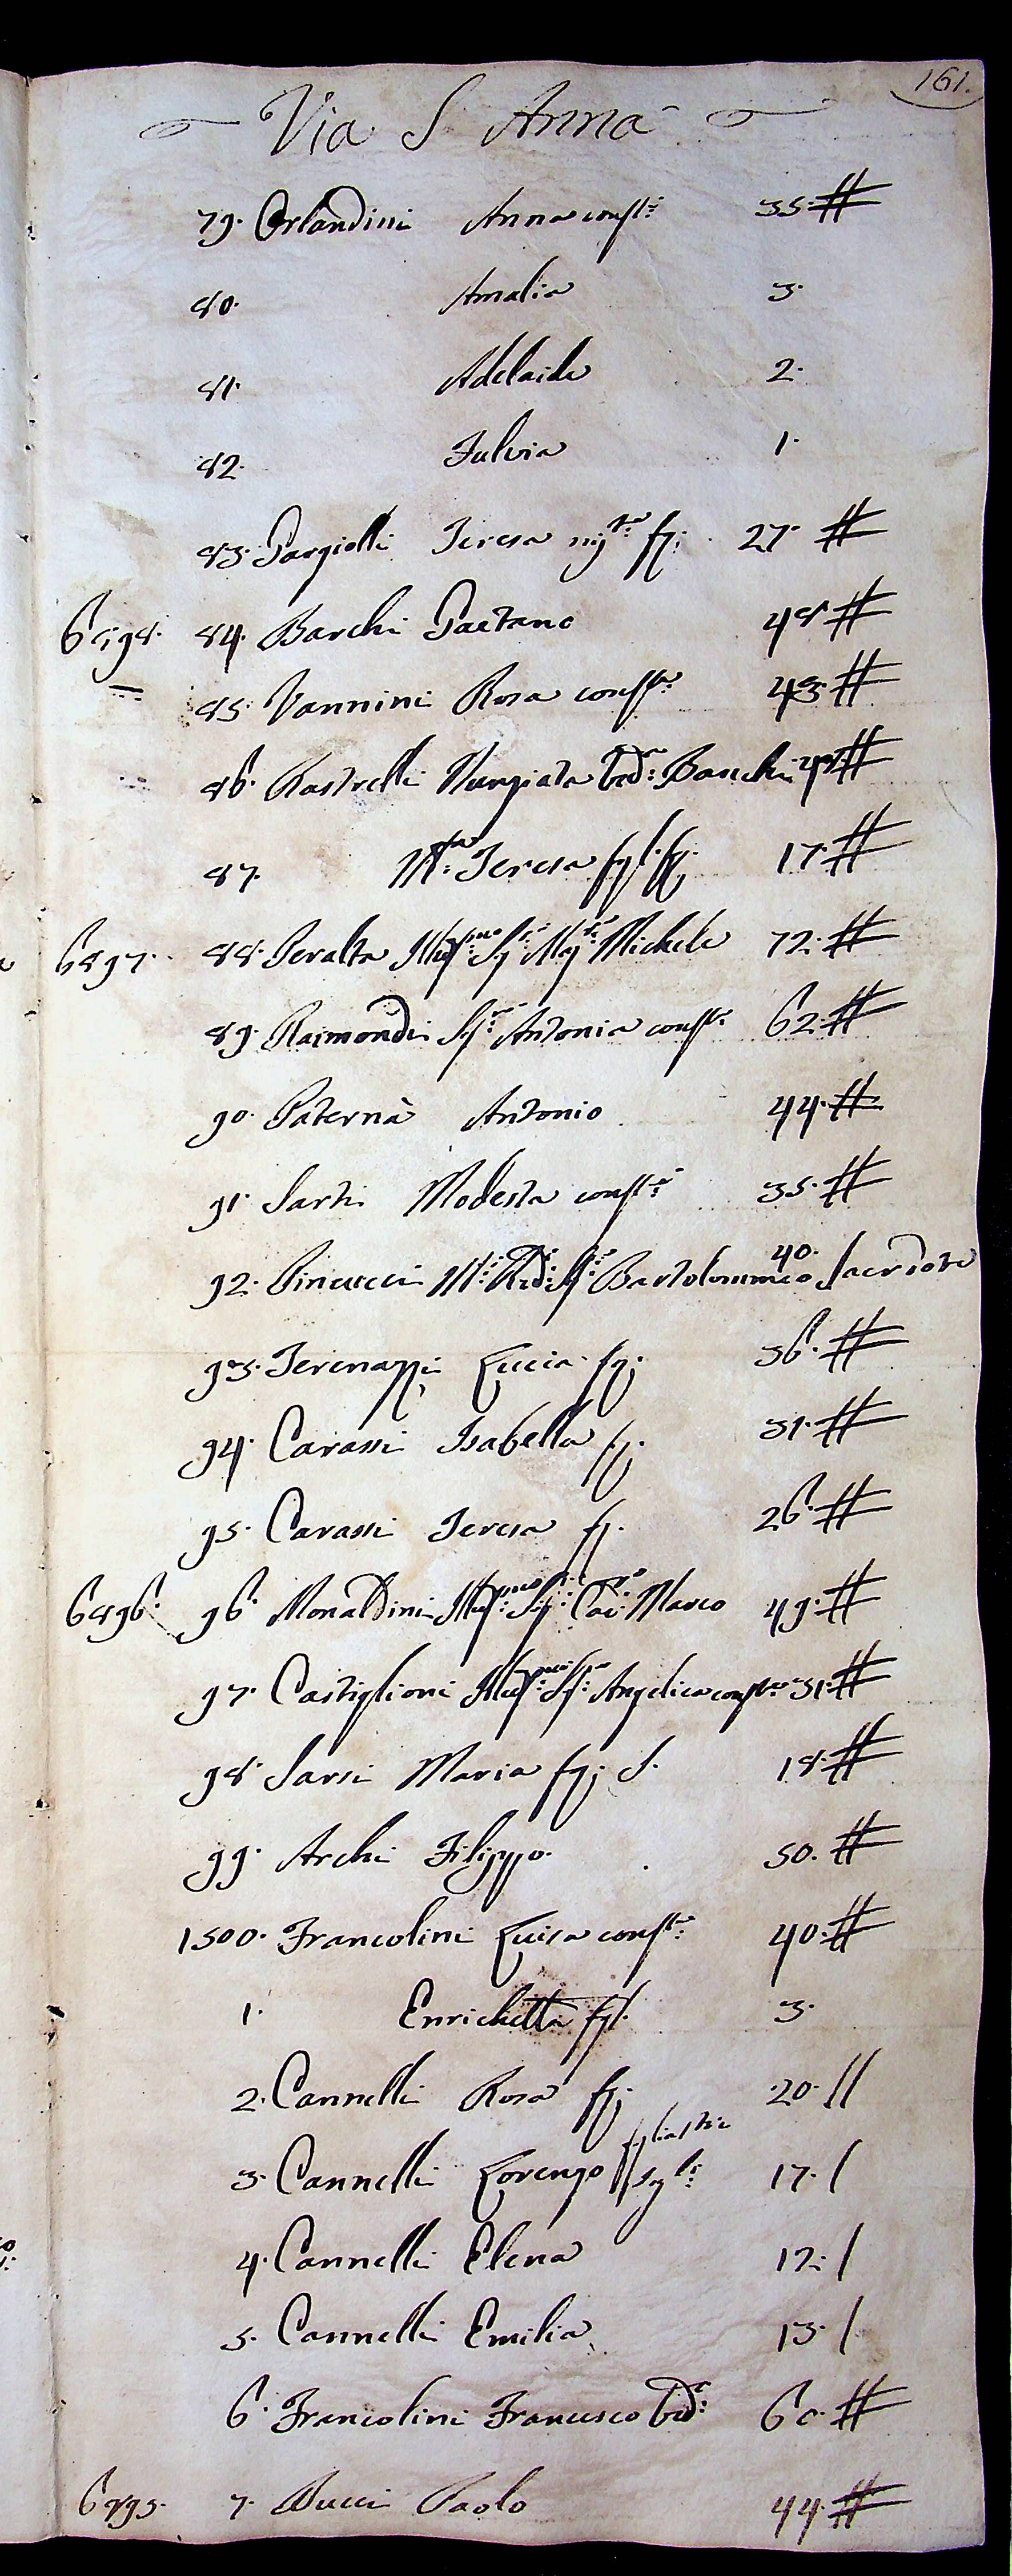 161.
Via S Anna
79. Orlandini Anna conste: 35. #
80. Amalia 3.
81. Adelaide 2.
82. Fulvia 1.
83. Teresa 27. #
6898. 84. Barchi Gaetano 48 #
85. Vannini Rosa conste: 43. #
86. Rastrelli Nunziata Ved: Barchi #
87. Ma: Teresa figl. 17. #
6897. 88. Peralta Illmo: Sigr: Michele 72. #
89. Raimondi Siga: Antonia conste: 62. #
90. Paternà Antonio 44. #
91. Sarti Modesta conste: 35. #
92. Pinucci Mto: Rdo: Sigr: Bartolommeo 40. Sacerdote
93. Terenazzi Lucia 36. #
94. Carassi Isabella 31. #
95. Carassi Teresa 26. #
6896. 96. Monaldini Illmo: Sigr: Cavo: Marco 49. #
97. Castiglioni Illma: Siga: Angelica conste: 31. #
98. Sarsi Maria S. 18. #
99. Archi Filippo. 50. #
1500. Francolini Luisa conste: 40. #
1. Enrichetta figl. 3.
2. Cannelli Rosa 20. //
3. Cannelli Lorenzo figliastri 17. /
4. Cannelli Elena 12. /
5. Cannelli Emilia 13. /
6. Francolini Francesco Vedo: 60. #
6895. 7. Bucci Paolo 44. #